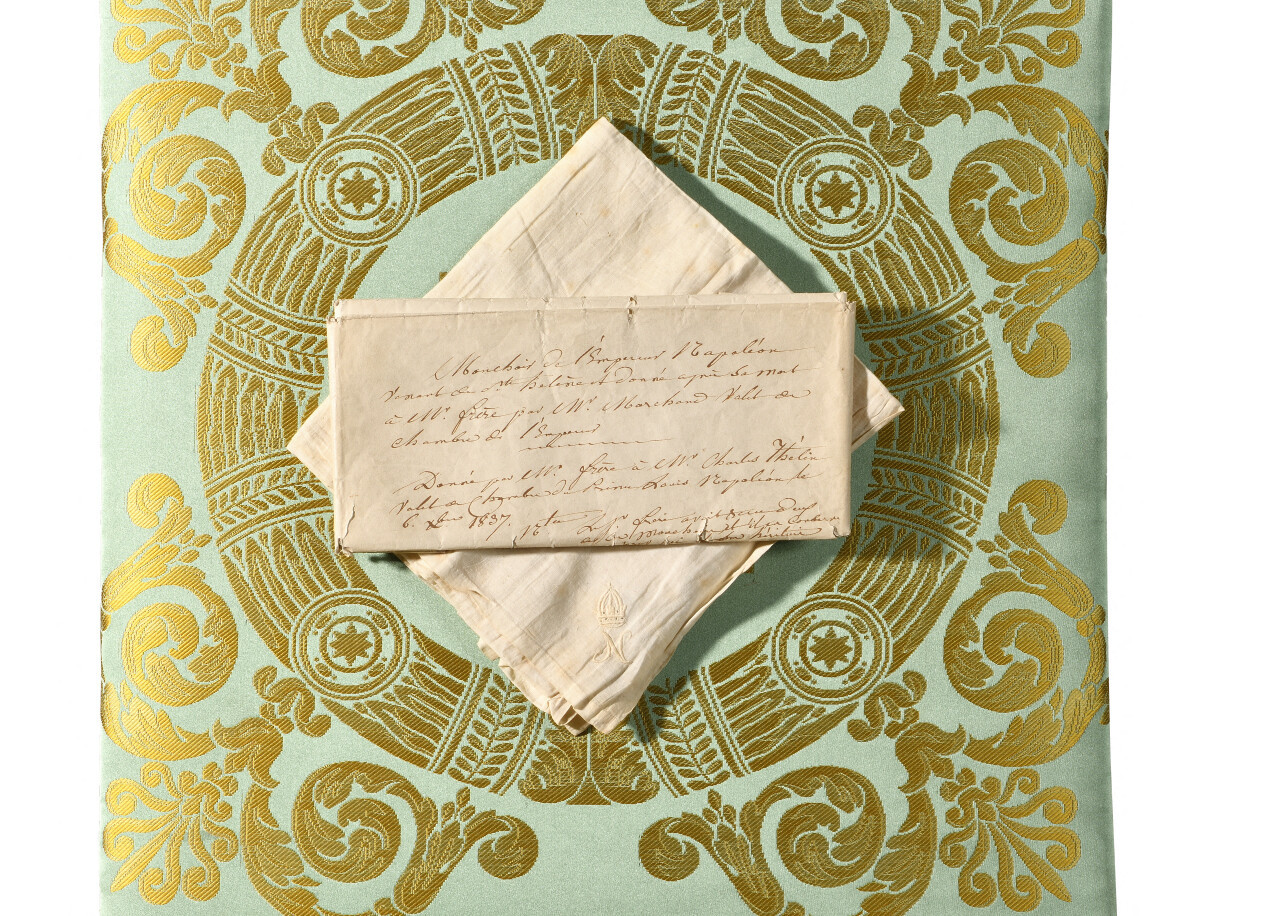 Mouchoir de l'Empereur Napoléon
venant de Ste hélène et donné après sa mort
à Mr. frère par Mr. Marchand Valet de
Chambre de l'Empereur
Donné par Mr. frère à Mr. Charles Thélin
Valet de Chambre du Prince Louis Napoléon le
6 Xbre 1837.
Le Mr frère avait reçu deux
mouchoirs et il en
N